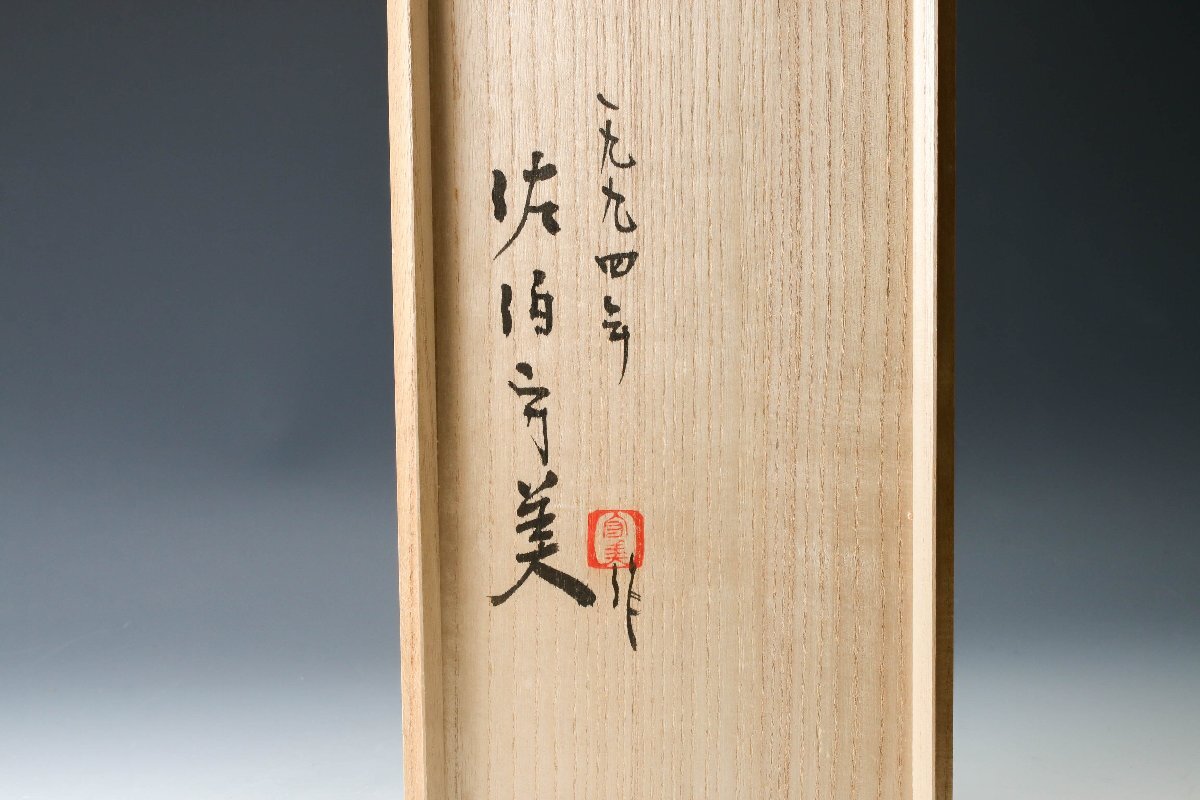 一九九四年
佐伯守美
作
守美